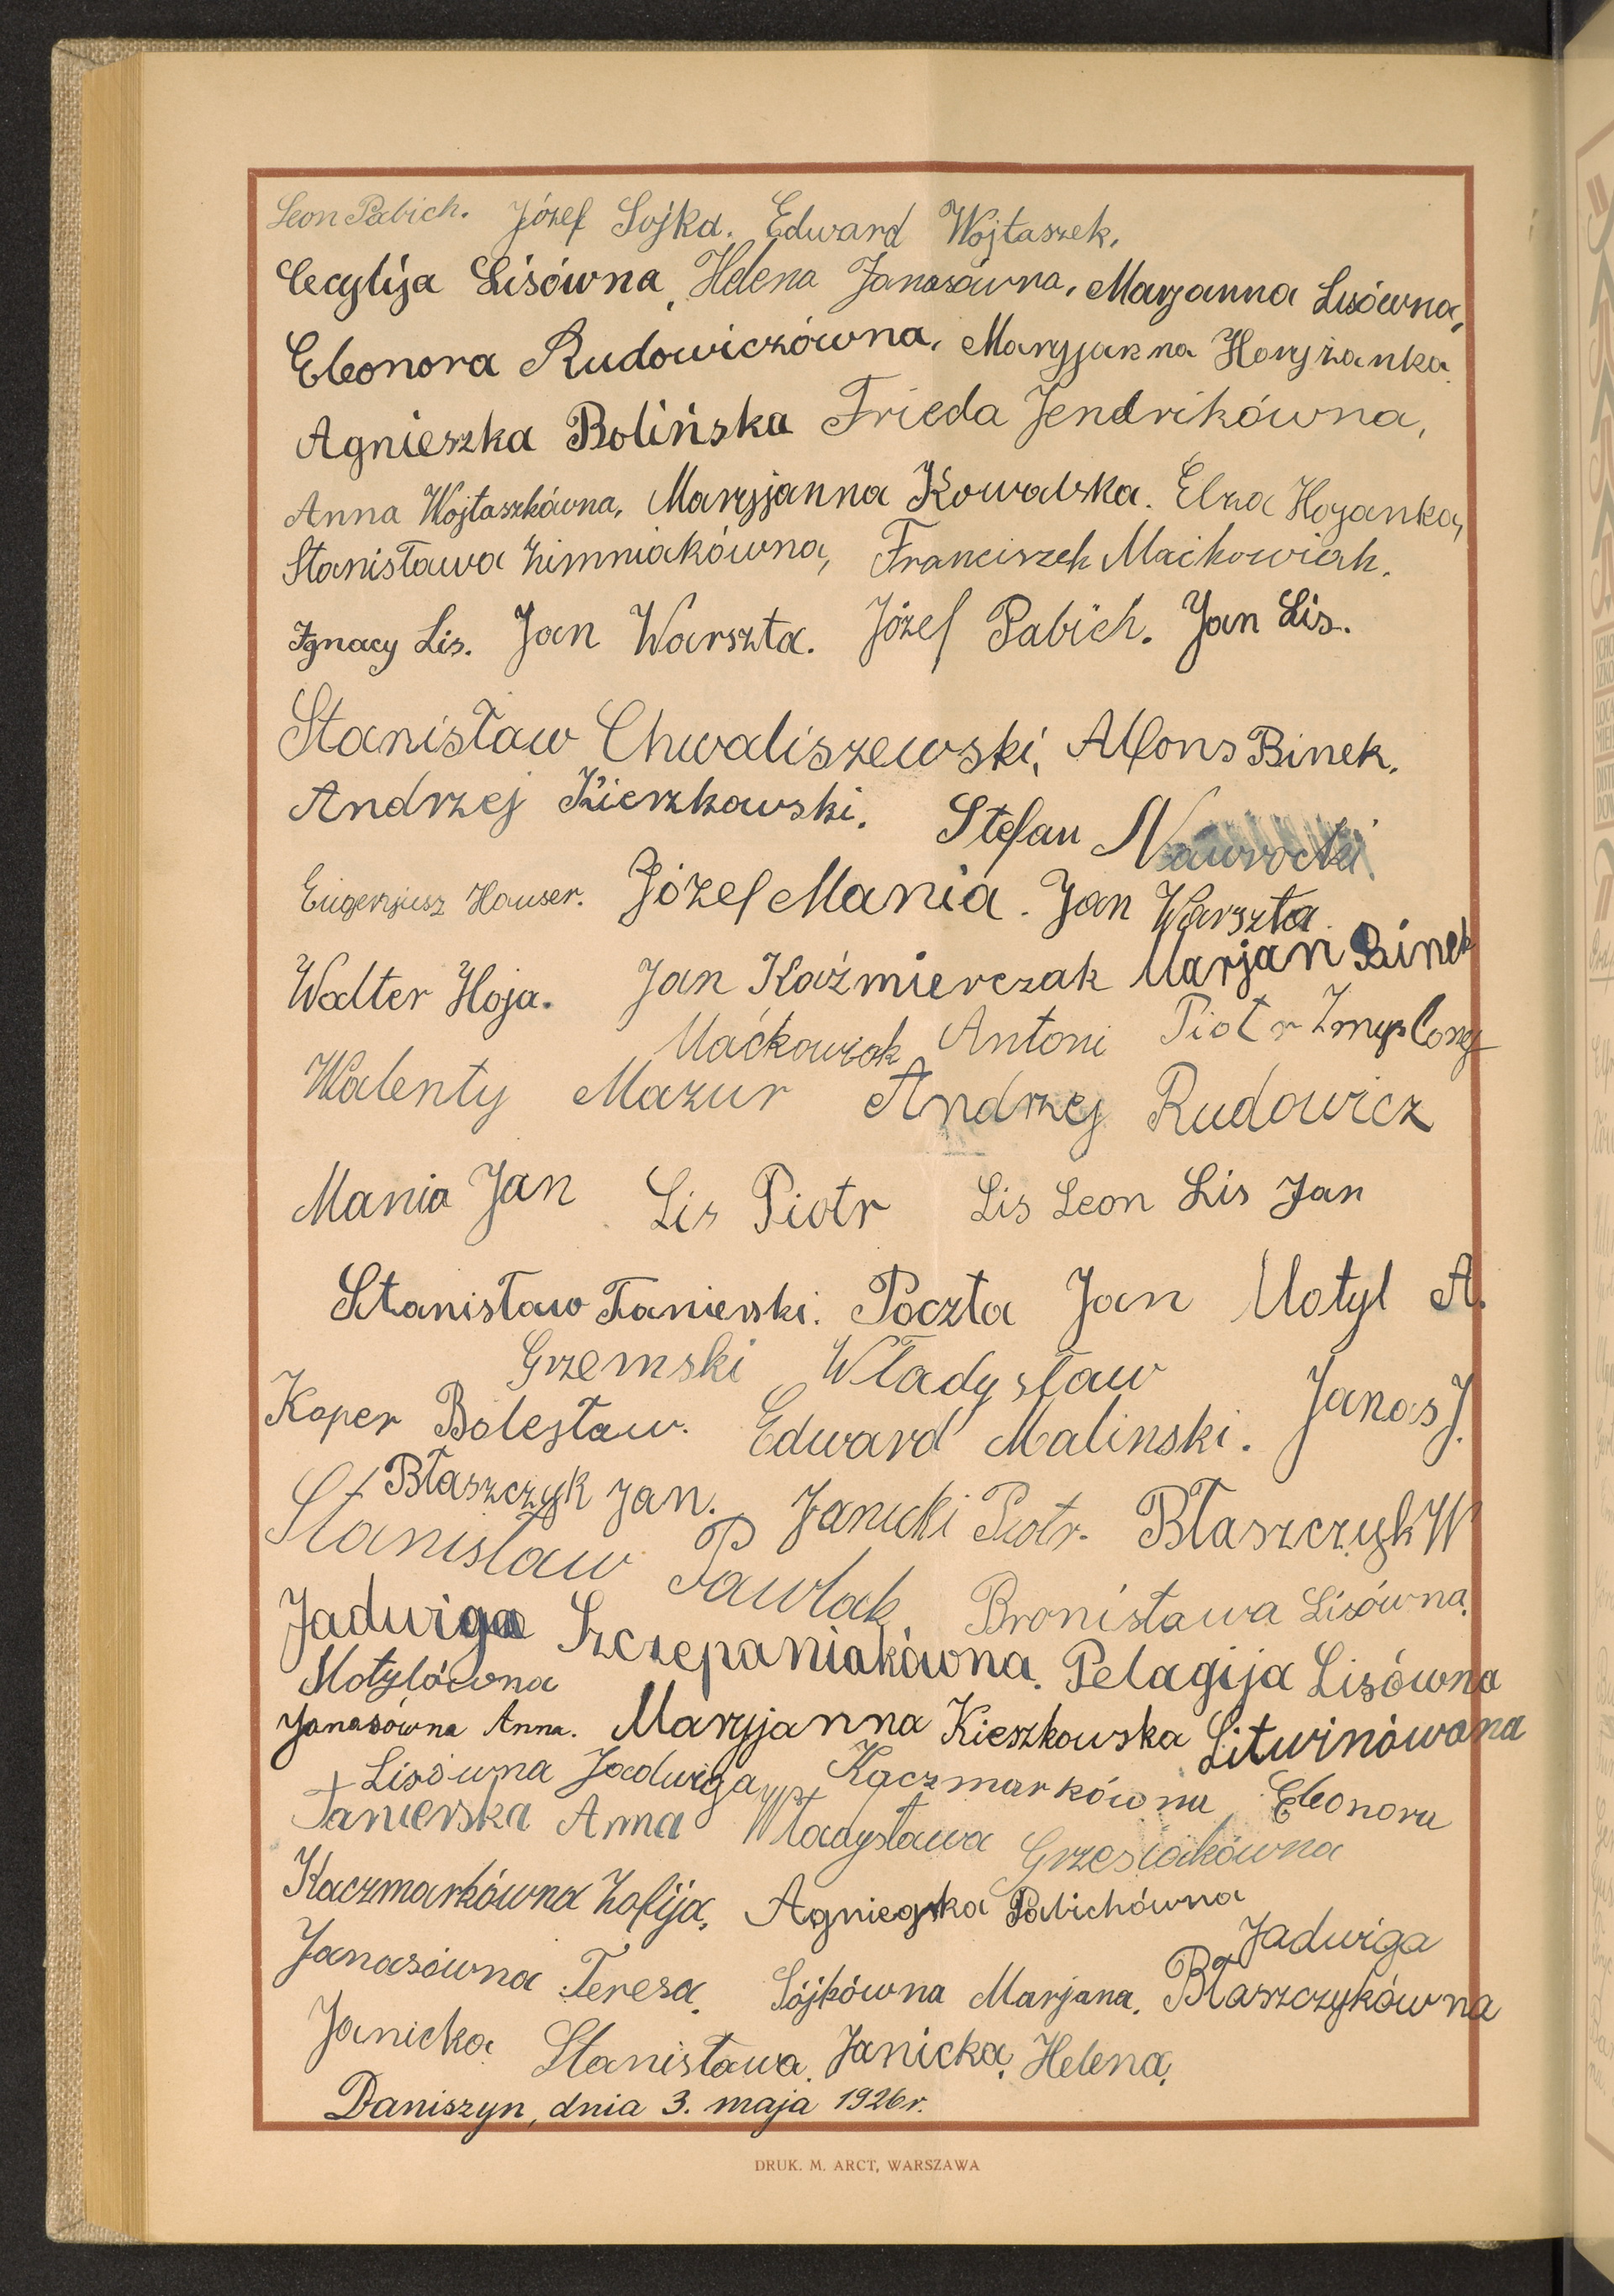 Leon Pabich. Józef Sojka. Edward Wojtaszek.
Cecylija Lisówna, Helena Janasówna, Marjanna Lisówna,
Eleonora Rudowiczówna, Maryjanna Horyżanka.
Agnieszka Bolińska Frieda Jendrikówna,
Anna Wojtaszkówna, Maryjanna Kowalska. Elza Hojanka,
Stanisława Zimniakówna, Franciszek Maćkowiak.
Ignacy Lis. Jan Warszta. Józef Pabich. Jan Lis.
Stanisław Chwaliszewski, Alfons Binek.
Andrzej Kierzkowski. Stefan Nawrocki
Eugenjusz Hauser. Józef Mania. Jan Warszta.
Walter Hoja. Jan Kaźmierczak Marjan Binek
Maćkowiak Antoni Piotr Zmyślony
Walenty Mazur Andrzej Rudowicz
Mania Jan Lis Piotr Lis Leon Lis Jan
Stanisław Tanierski. Poczta Jan Motyl A.
Grzemski Władysław
Koper Bolesław. Edward Malinski. Janas J.
Błaszczyk Jan. Janicki Piotr. Błaszczyk W
Stanisław Pawlak Bronisława Lisówna.
Jadwiga Szczepaniakówna. Pelagija Lisówna
Motylówna
Janasówna Anna. Maryjanna Kieszkowska Litwinówna
Lisówna Jadwiga Kaczmarkówna Eleonora
Tanierska Anna Władysława Grzesiakówna
Kaczmarkówna Zofija, Agnieszka Pabichówna
Jadwiga
Janasówna Teresa. Sójkówna Marjana. Błaszczykówna
Janicka Stanisława. Janicka Helena.
Daniszyn, dnia 3. maja 1926 r.
DRUK. M. ARCT, WARSZAWA